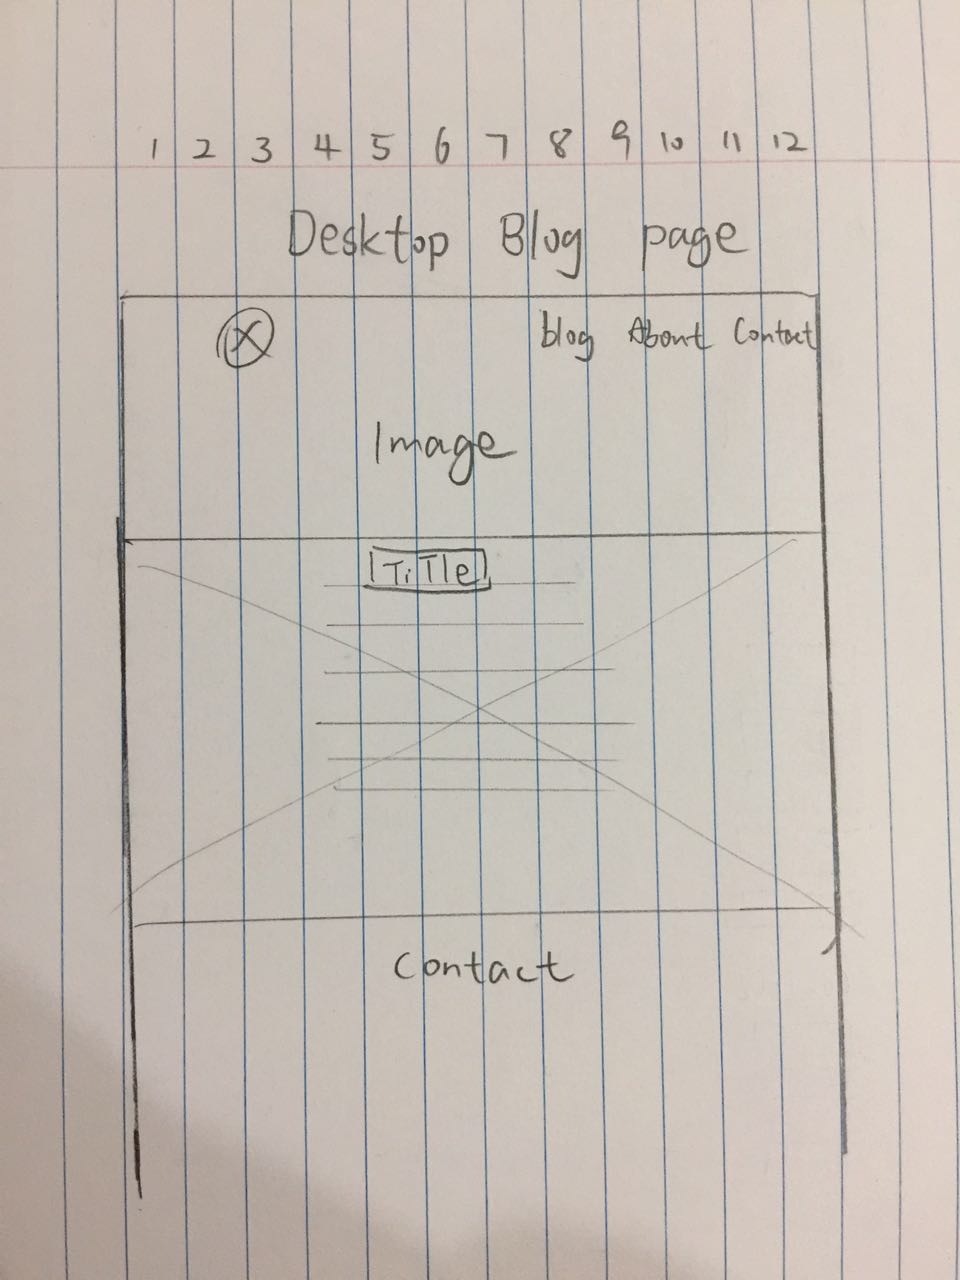 1 2 3 4 5 6 7 8 9 10 11 12
Desktop Blog page
X blog About Contact
Image
TiTle
Contact